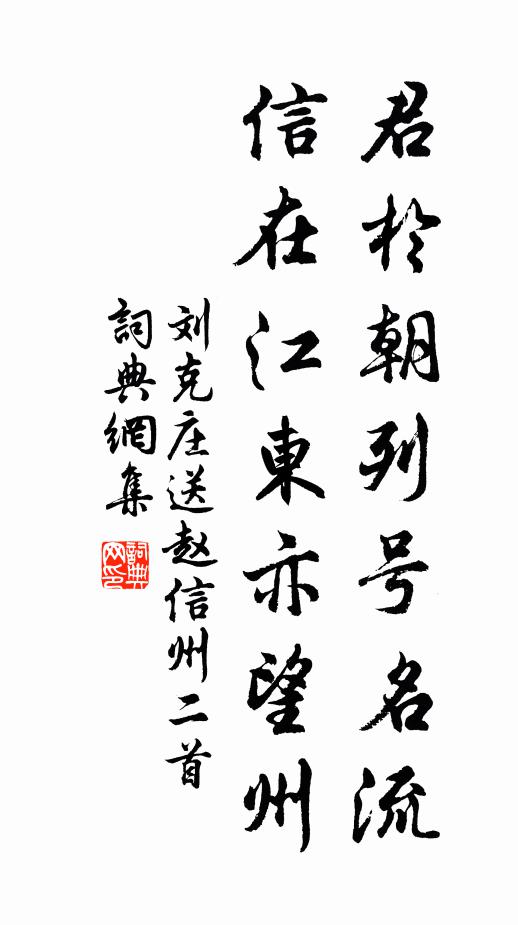 君於朝列号名流
信在江東亦望州
刘克庄送赵信州二首
詞典網集
詞典
网印